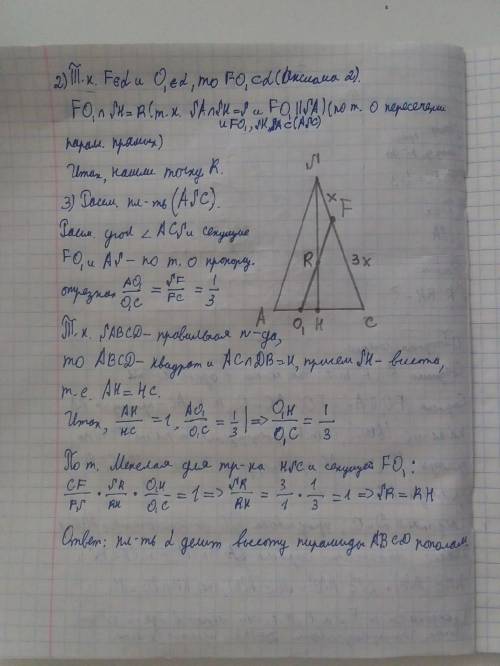 2) Т.к. F∈α и O₁∈α, то FO₁⊂α (Аксиома 2).
FO₁∩SH=R (т.к. SA∩SH=S и FO₁∥SA) (по т. о пересечении
и FO₁, SH, SA⊂(ASC)
парал. прямых)
Итак, нашли точку R.
3) Рассм. пл-ть (ASC).
Рассм. угол ∠ACS и секущие
FO₁ и AS – по т. о пропорц.
отрезках AO₁/O₁C = SF/FC = 1/3
S
x
F
R
3x
A
O₁
H
C
Т.к. SABCD – правильная п-да,
то ABCD – квадрат и AC∩DB=H, причем SH – высота,
т.е. AH=HC.
Итак, AH/HC = 1, AO₁/O₁C = 1/3 | => O₁H/O₁C = 1/3
По т. Менелая для тр-ка HSC и секущей FO₁:
CF/FS · SR/RH · O₁H/O₁C = 1 => SR/RH = 3/1 · 1/3 = 1 => SR = RH
Ответ: пл-ть α делит высоту пирамиды ABCD пополам.